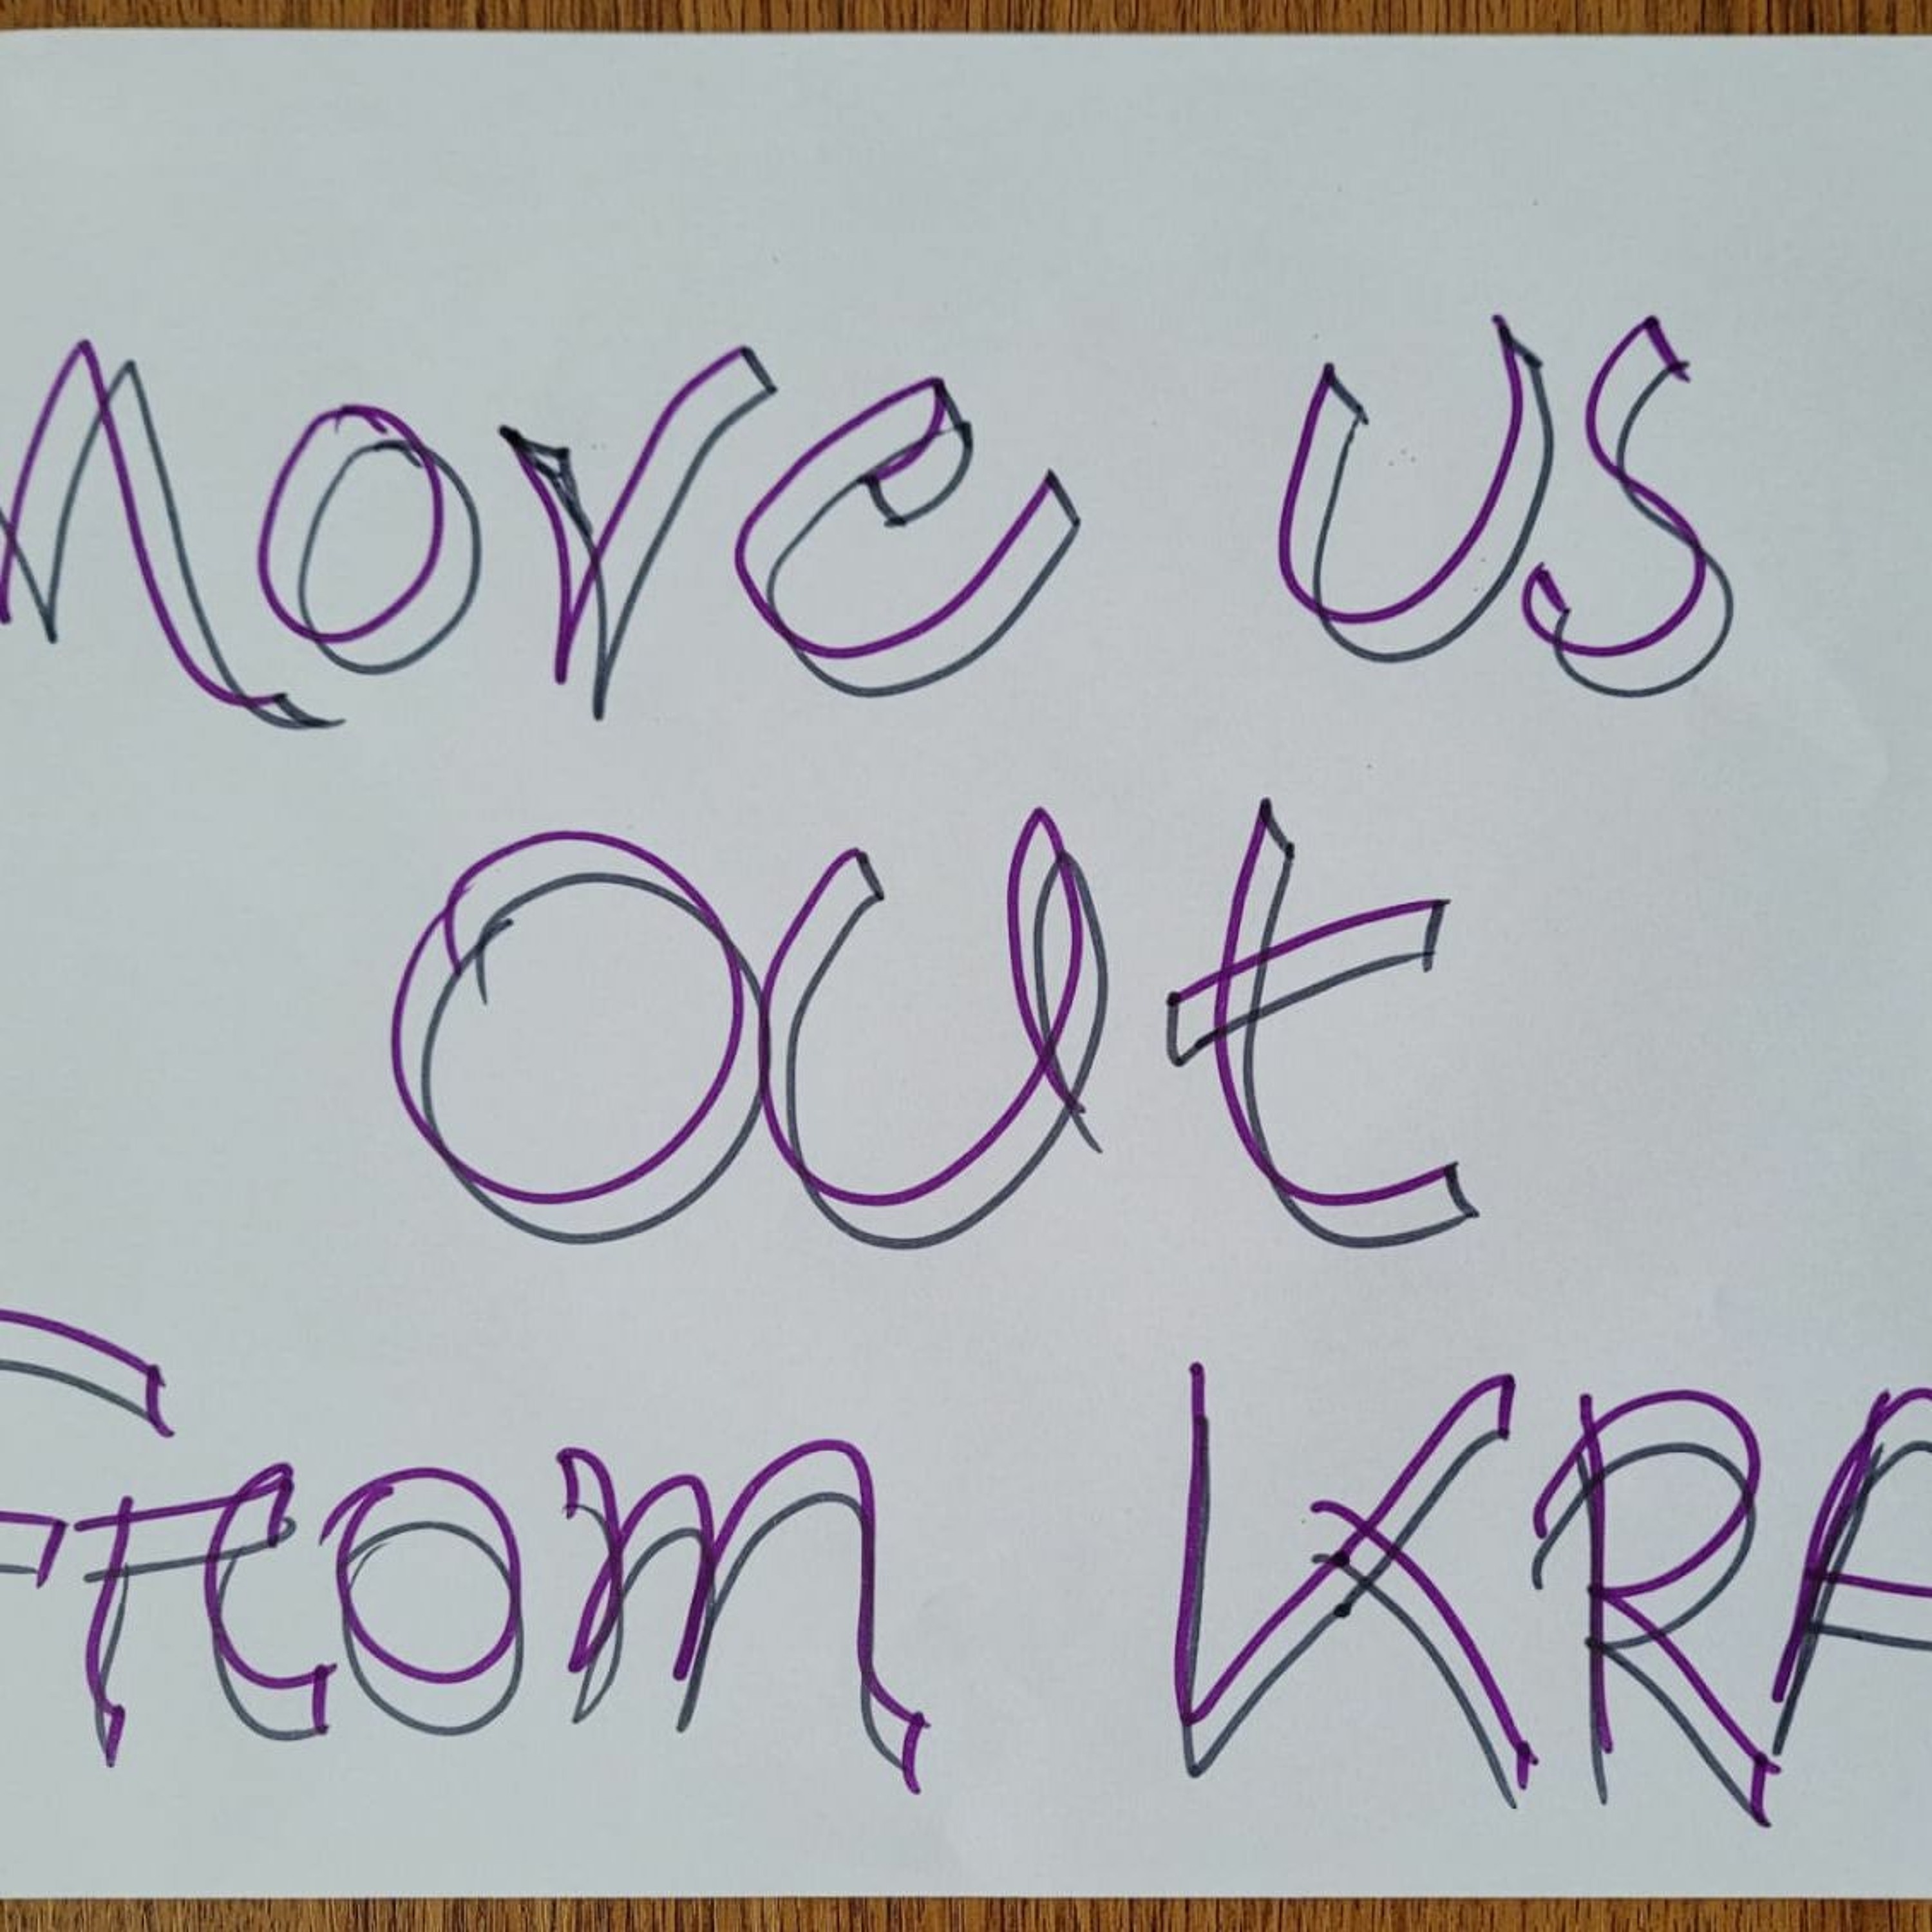 Move us
out
From KRA